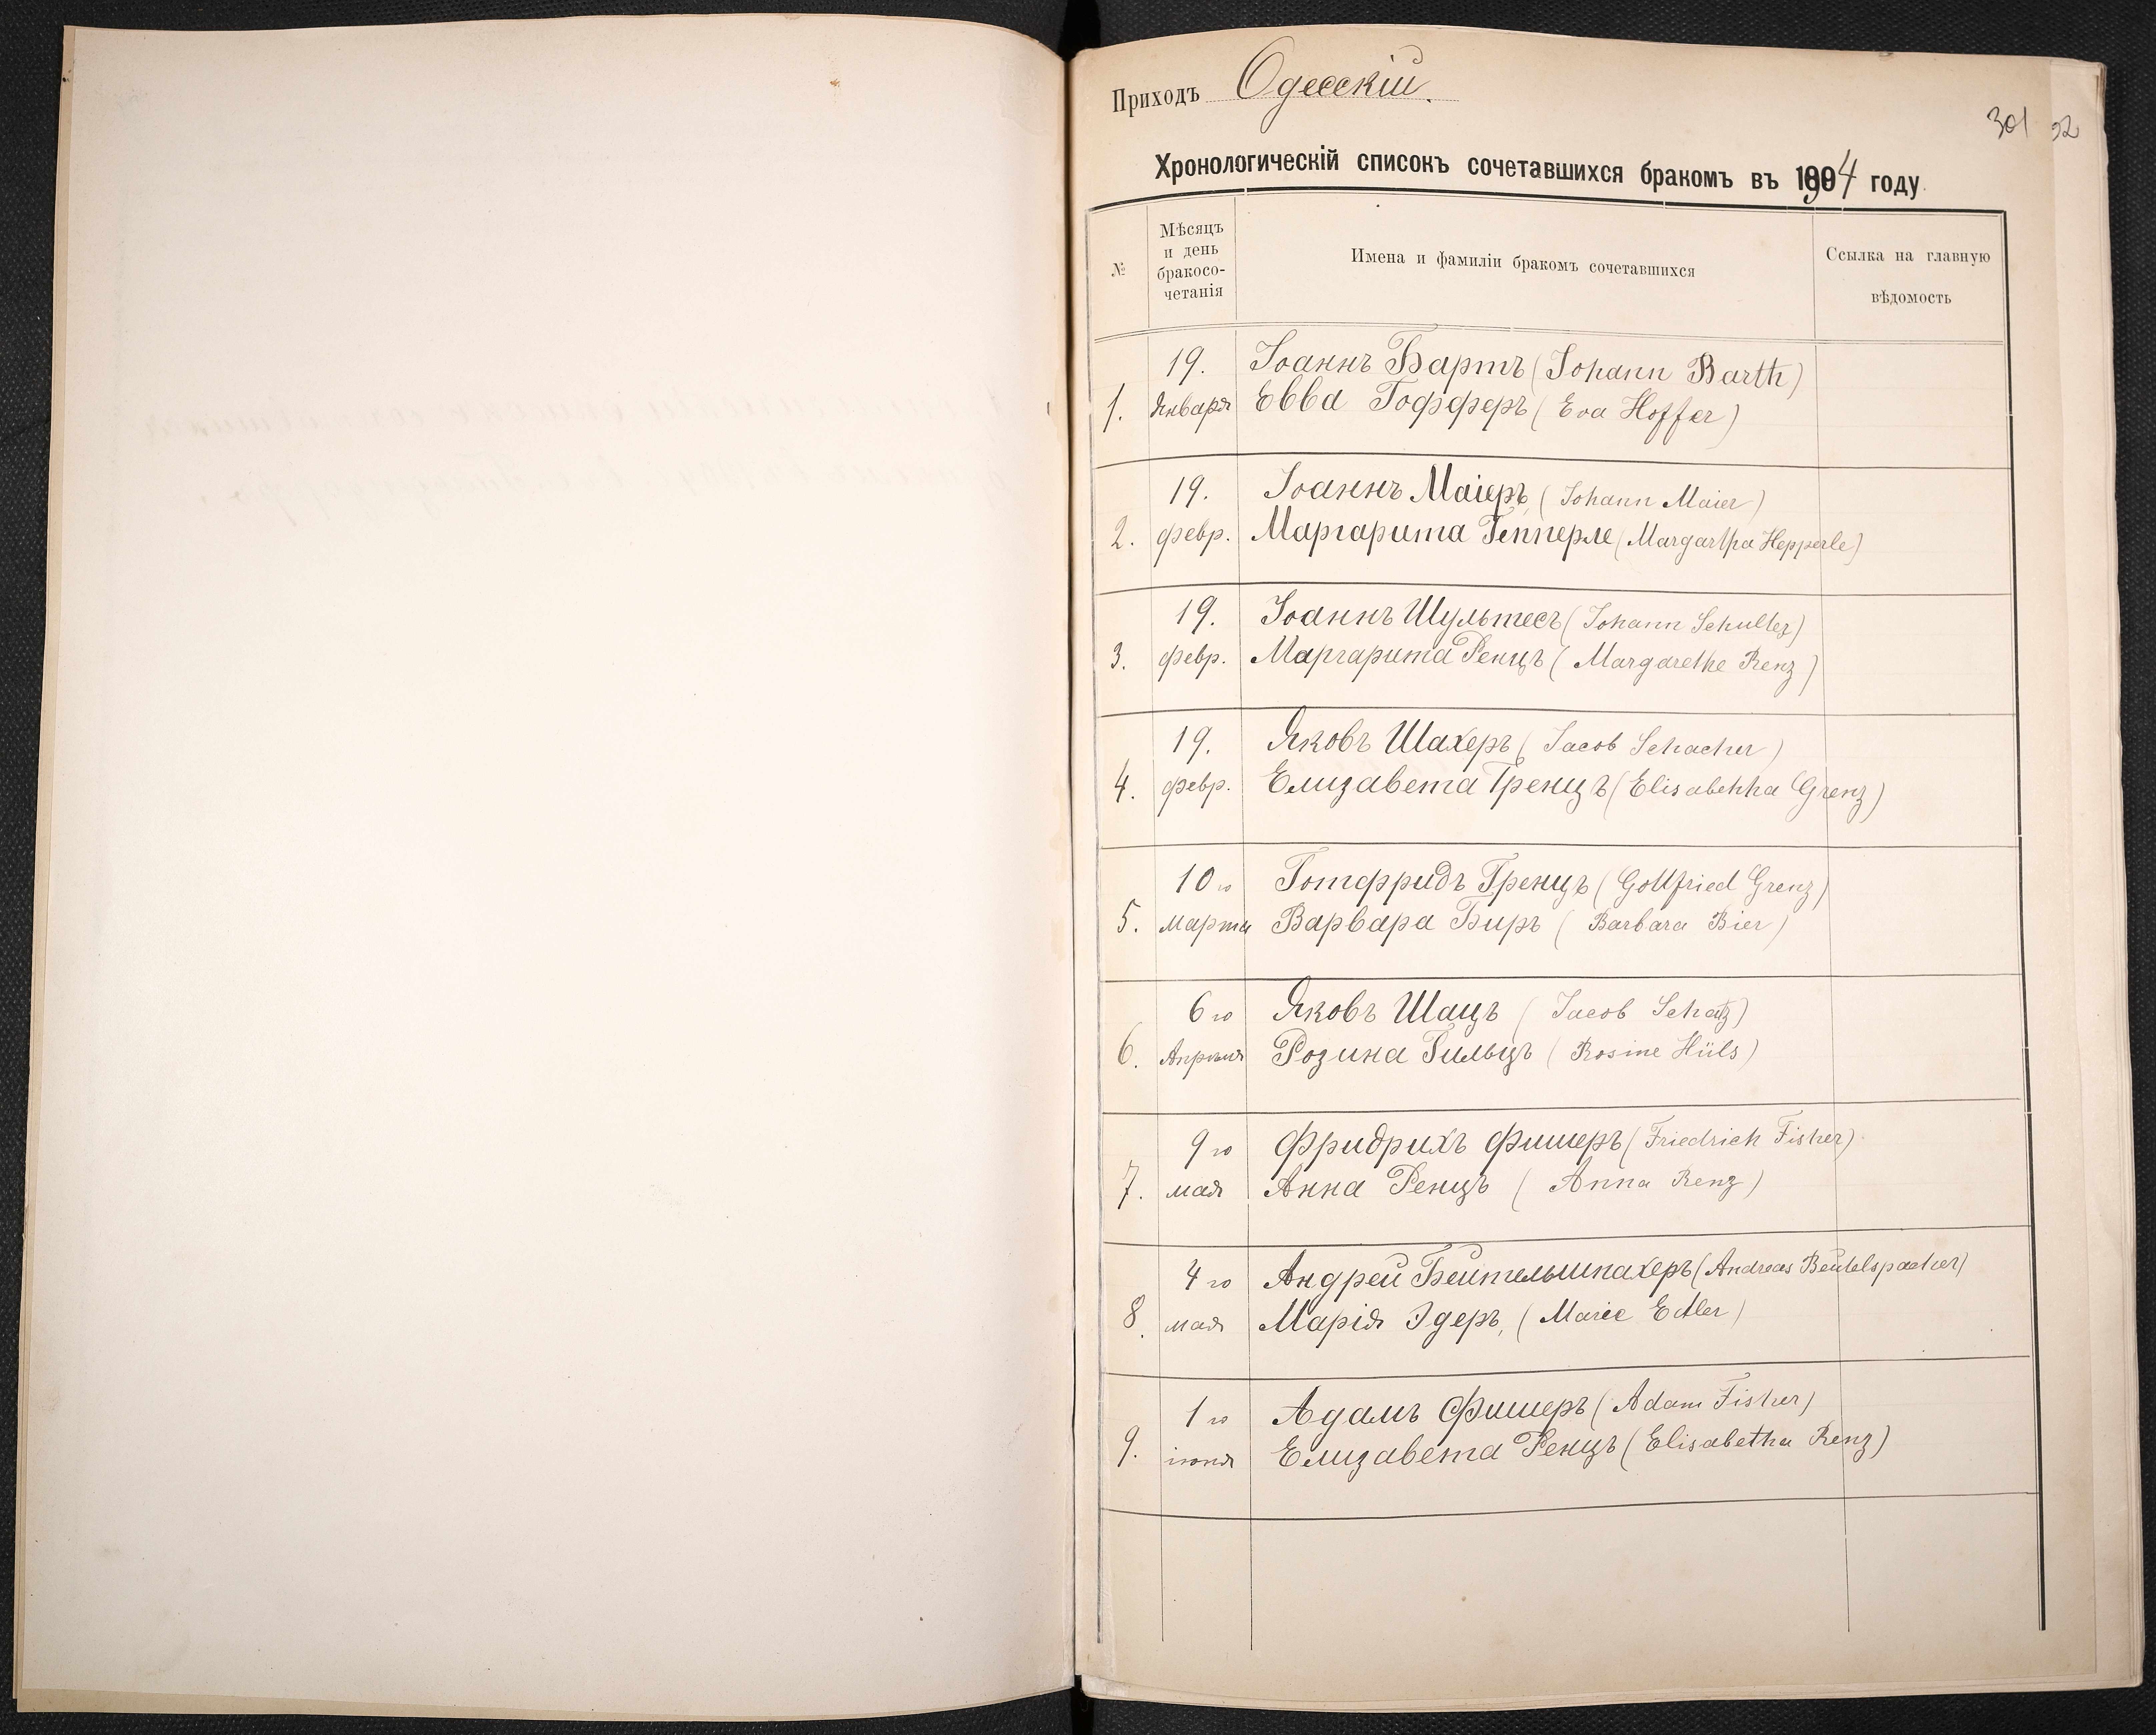 Приходъ Одесскій.
301 92
Хронологическій списокъ сочетавшихся бракомъ въ 1904 году.
№
Мѣсяцъ
и день
бракосо-
четанія
Имена и фамиліи бракомъ сочетавшихся
Ссылка на главную
вѣдомость
19. Іоаннъ Бартъ (Johann Barth)
1. Января Евва Гофферъ (Eva Hoffer)
19. Іоаннъ Маіеръ (Johann Maier)
2. февр. Маргарита Гепперле (Margartha Hepperle)
19. Іоаннъ Шультесъ (Johann Schultes)
3. февр. Маргарита Ренцъ (Margarethe Renz)
19. Яковъ Шахеръ (Jacob Schacher)
4. февр. Елизавета Гренцъ (Elisabehha Grenz)
10 го Готфридъ Гренцъ (Gottfried Grenz)
5. марта Варвара Биръ (Barbara Bier)
6 го Яковъ Шацъ (Jacob Schatz)
6. Апрѣля Розина Гильцъ (Rosine Hüls)
9 го Фридрихъ Фишеръ (Friedrich Fisher)
7. мая Анна Ренцъ (Anna Renz)
4 го Андрей Бейтельшпахеръ (Andreas Beutelspacher)
8. мая Марія Эдеръ, (Marie Edler)
1 го Адамъ Фишеръ (Adam Fisher)
9. іюня Елизавета Ренцъ (Elisabetha Renz)